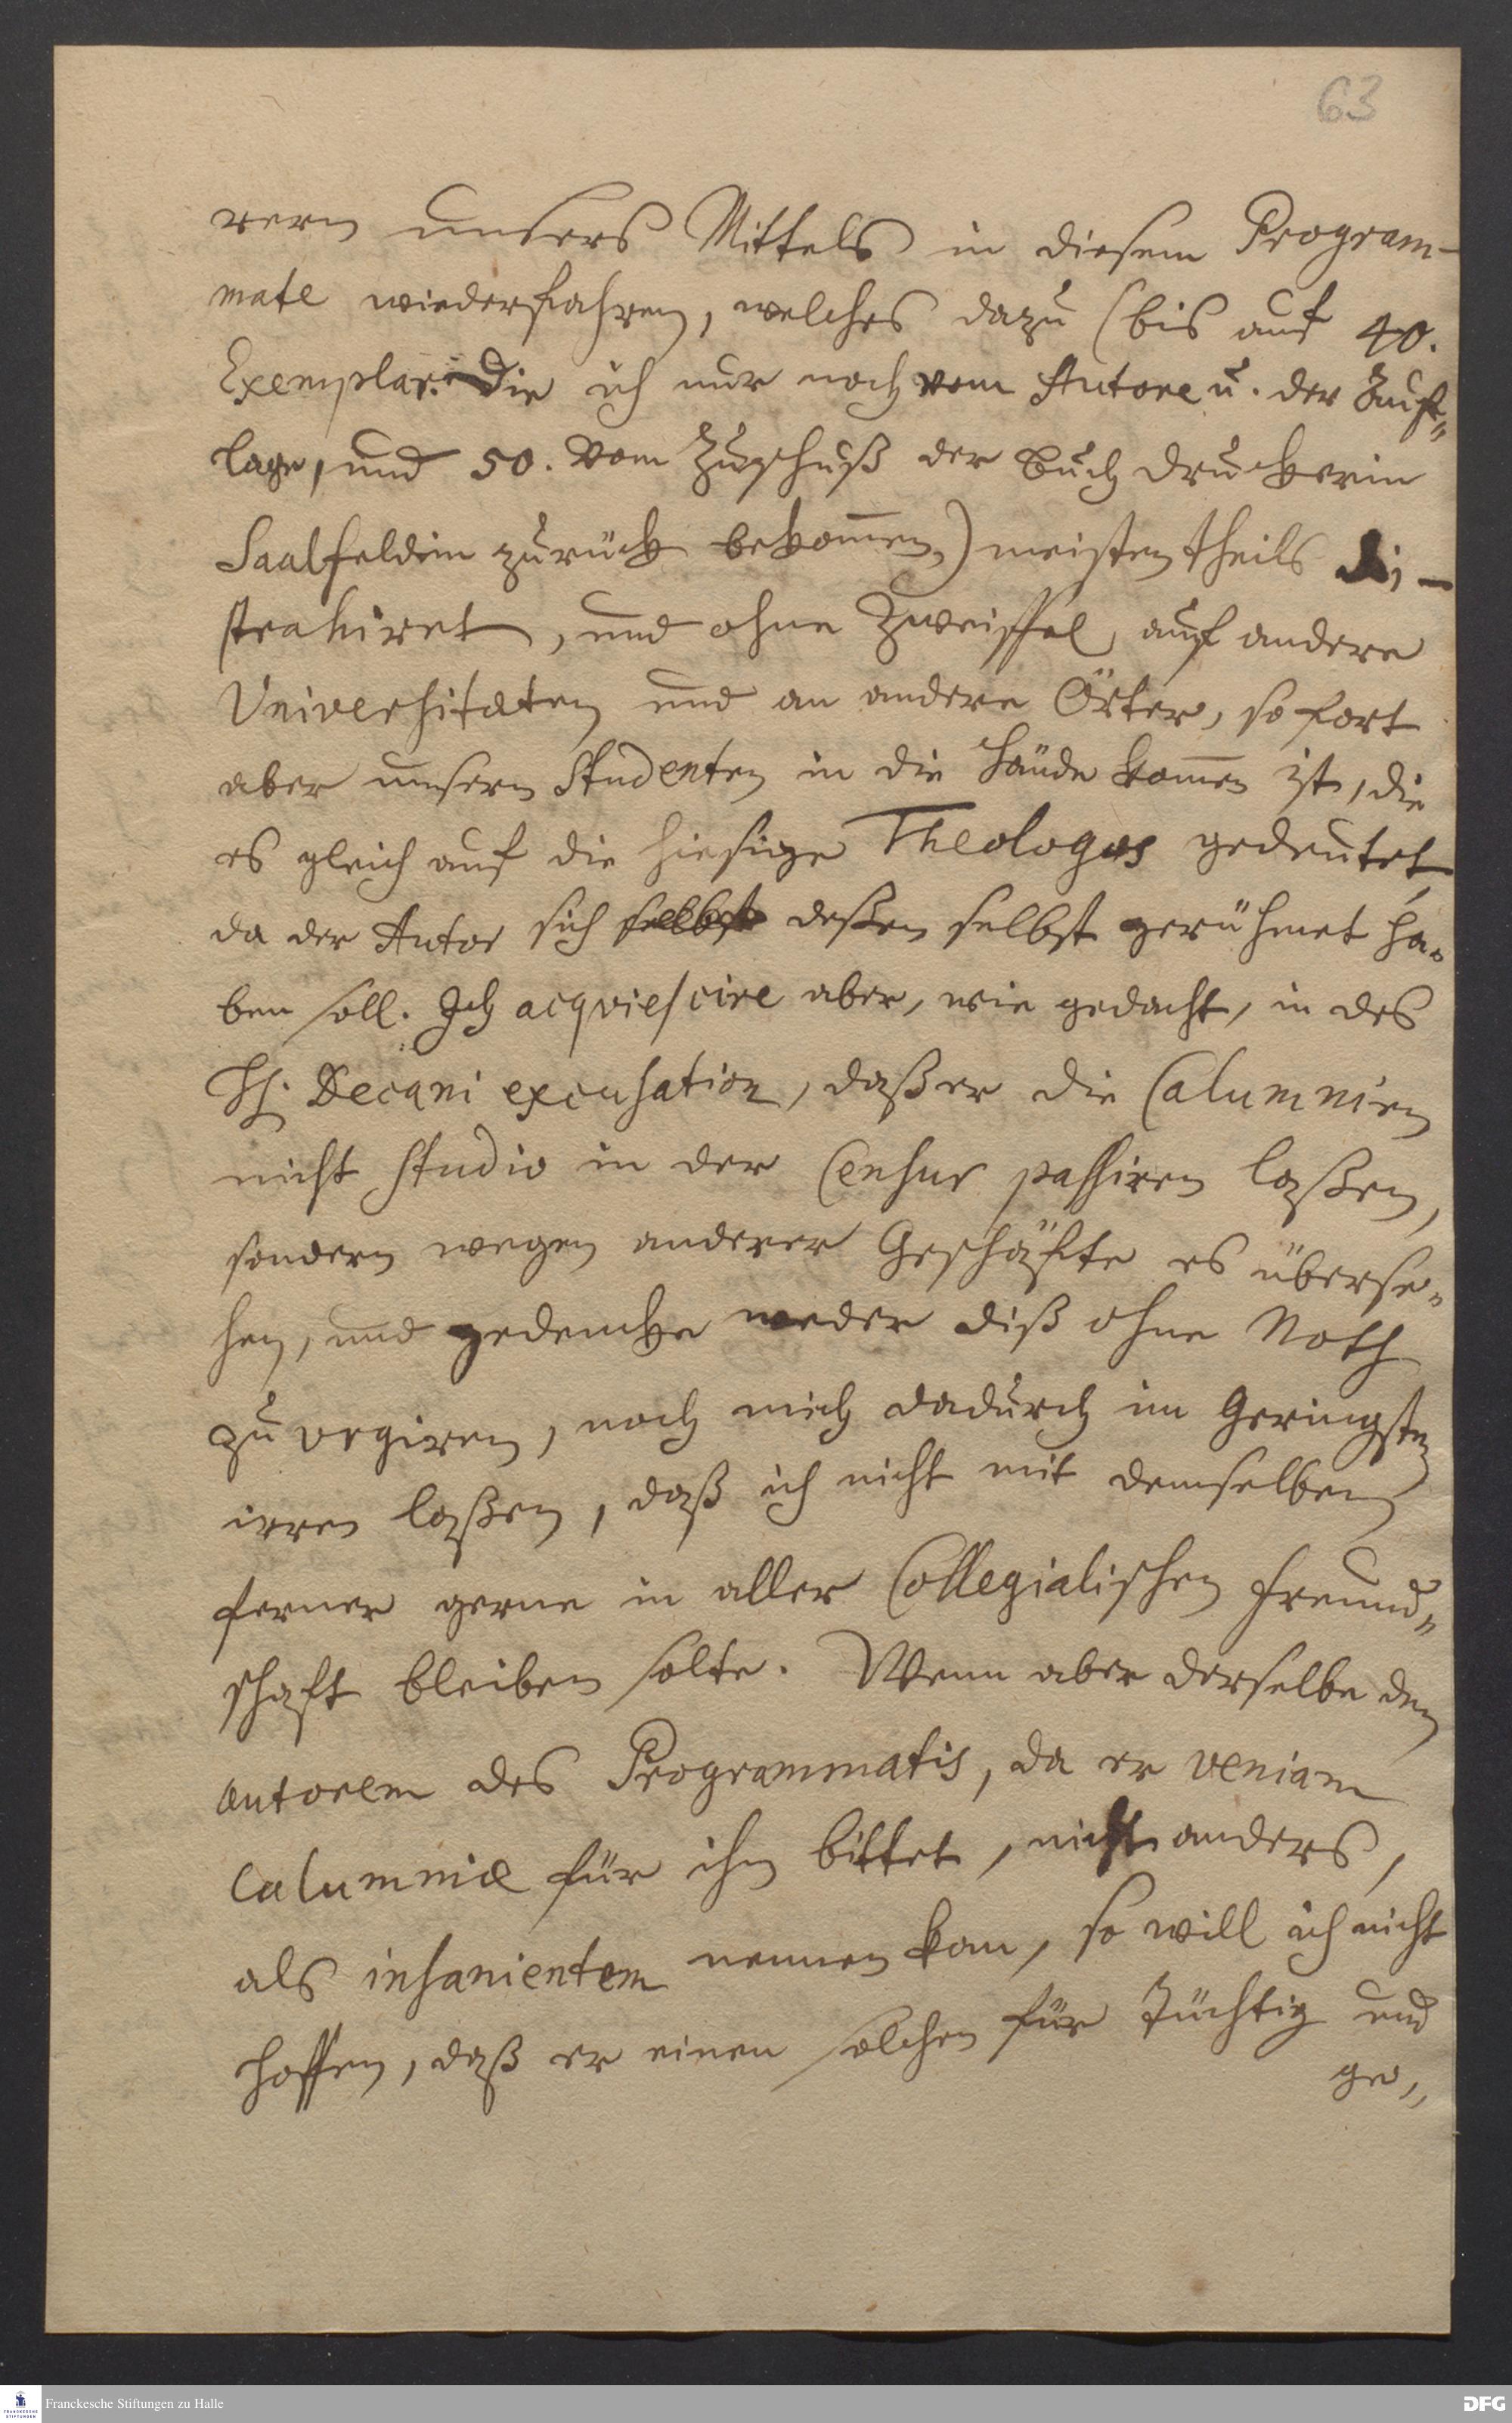 63
rern unsers Mittels in diesem Program-
mate wiederfahren, welches dazu (bis auf 40.
Exemplar. die ich nur noch vom Autore u. der Auf-
lage, und 50. vom Zuschuß der Buch druckerin
Saalfeldin zurück bekom̄en,) meisten theils di-
strahiret, und ohne Zweiffel, auf andere
Universitæten und an andere Örter, so fort
aber unsern Studenten in die Hände kom̄en ist, die
es gleich auf die hiesige Theologos gedeutet,
da der Autor sich selbst deßen selbst gerühmet ha-
ben soll. Ich acqviescire aber, wie gedacht, in des
H. Decani excusation, daß er die Calumnien
nicht studio in der Censur passiren laßen,
sondern wegen anderer Geschäfte es überse-
hen, und gedencke weder diß ohne Noth
zu vrgiren, noch mich dadurch im Geringsten
irren laßen, daß ich nicht mit demselben
ferner gerne in aller Collegialischen Freund-
schaft bleiben solte. Wenn aber derselbe den
autorem des Programmatis, da er veniam
calumniæ für ihn bittet, nicht anders,
als insanientem nennen kan, so will ich nicht
hoffen, daß er einen solchen für tüchtig und
ge-
Franckesche Stiftungen zu Halle
DFG